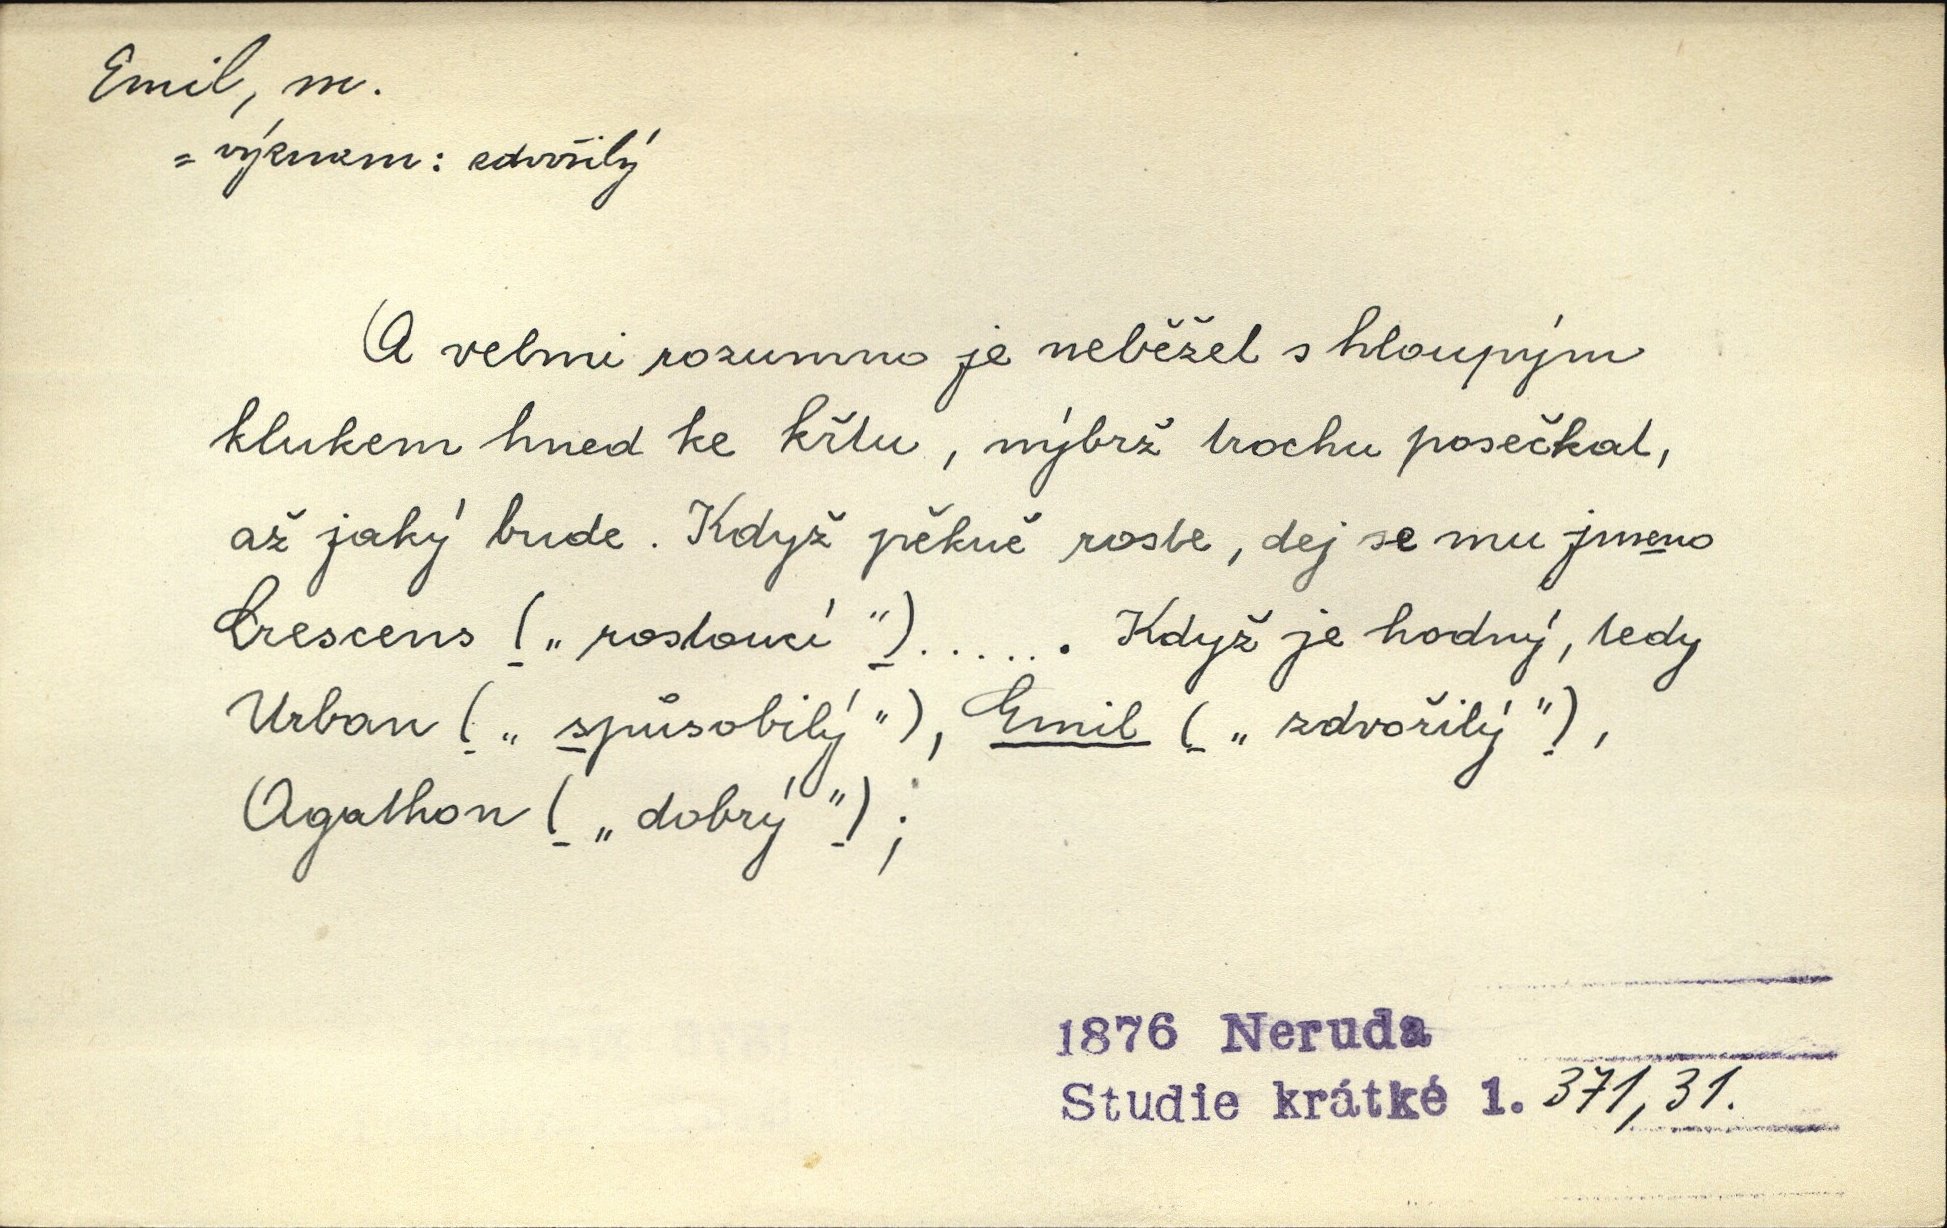 Emil, m.
= význam: zdvořilý
A velmi rozumno je neběžet s hloupým
klukem hned ke křtu, nýbrž trochu posečkat,
až jaký bude. Když pěkně roste, dej se mu jmeno
Crescens („rostoucí“)...... Když je hodný, tedy
Urban („spůsobilý“), Emil („zdvořilý“),
Agathon („dobrý“);
1876 Neruda
Studie krátké 1. 371, 31.